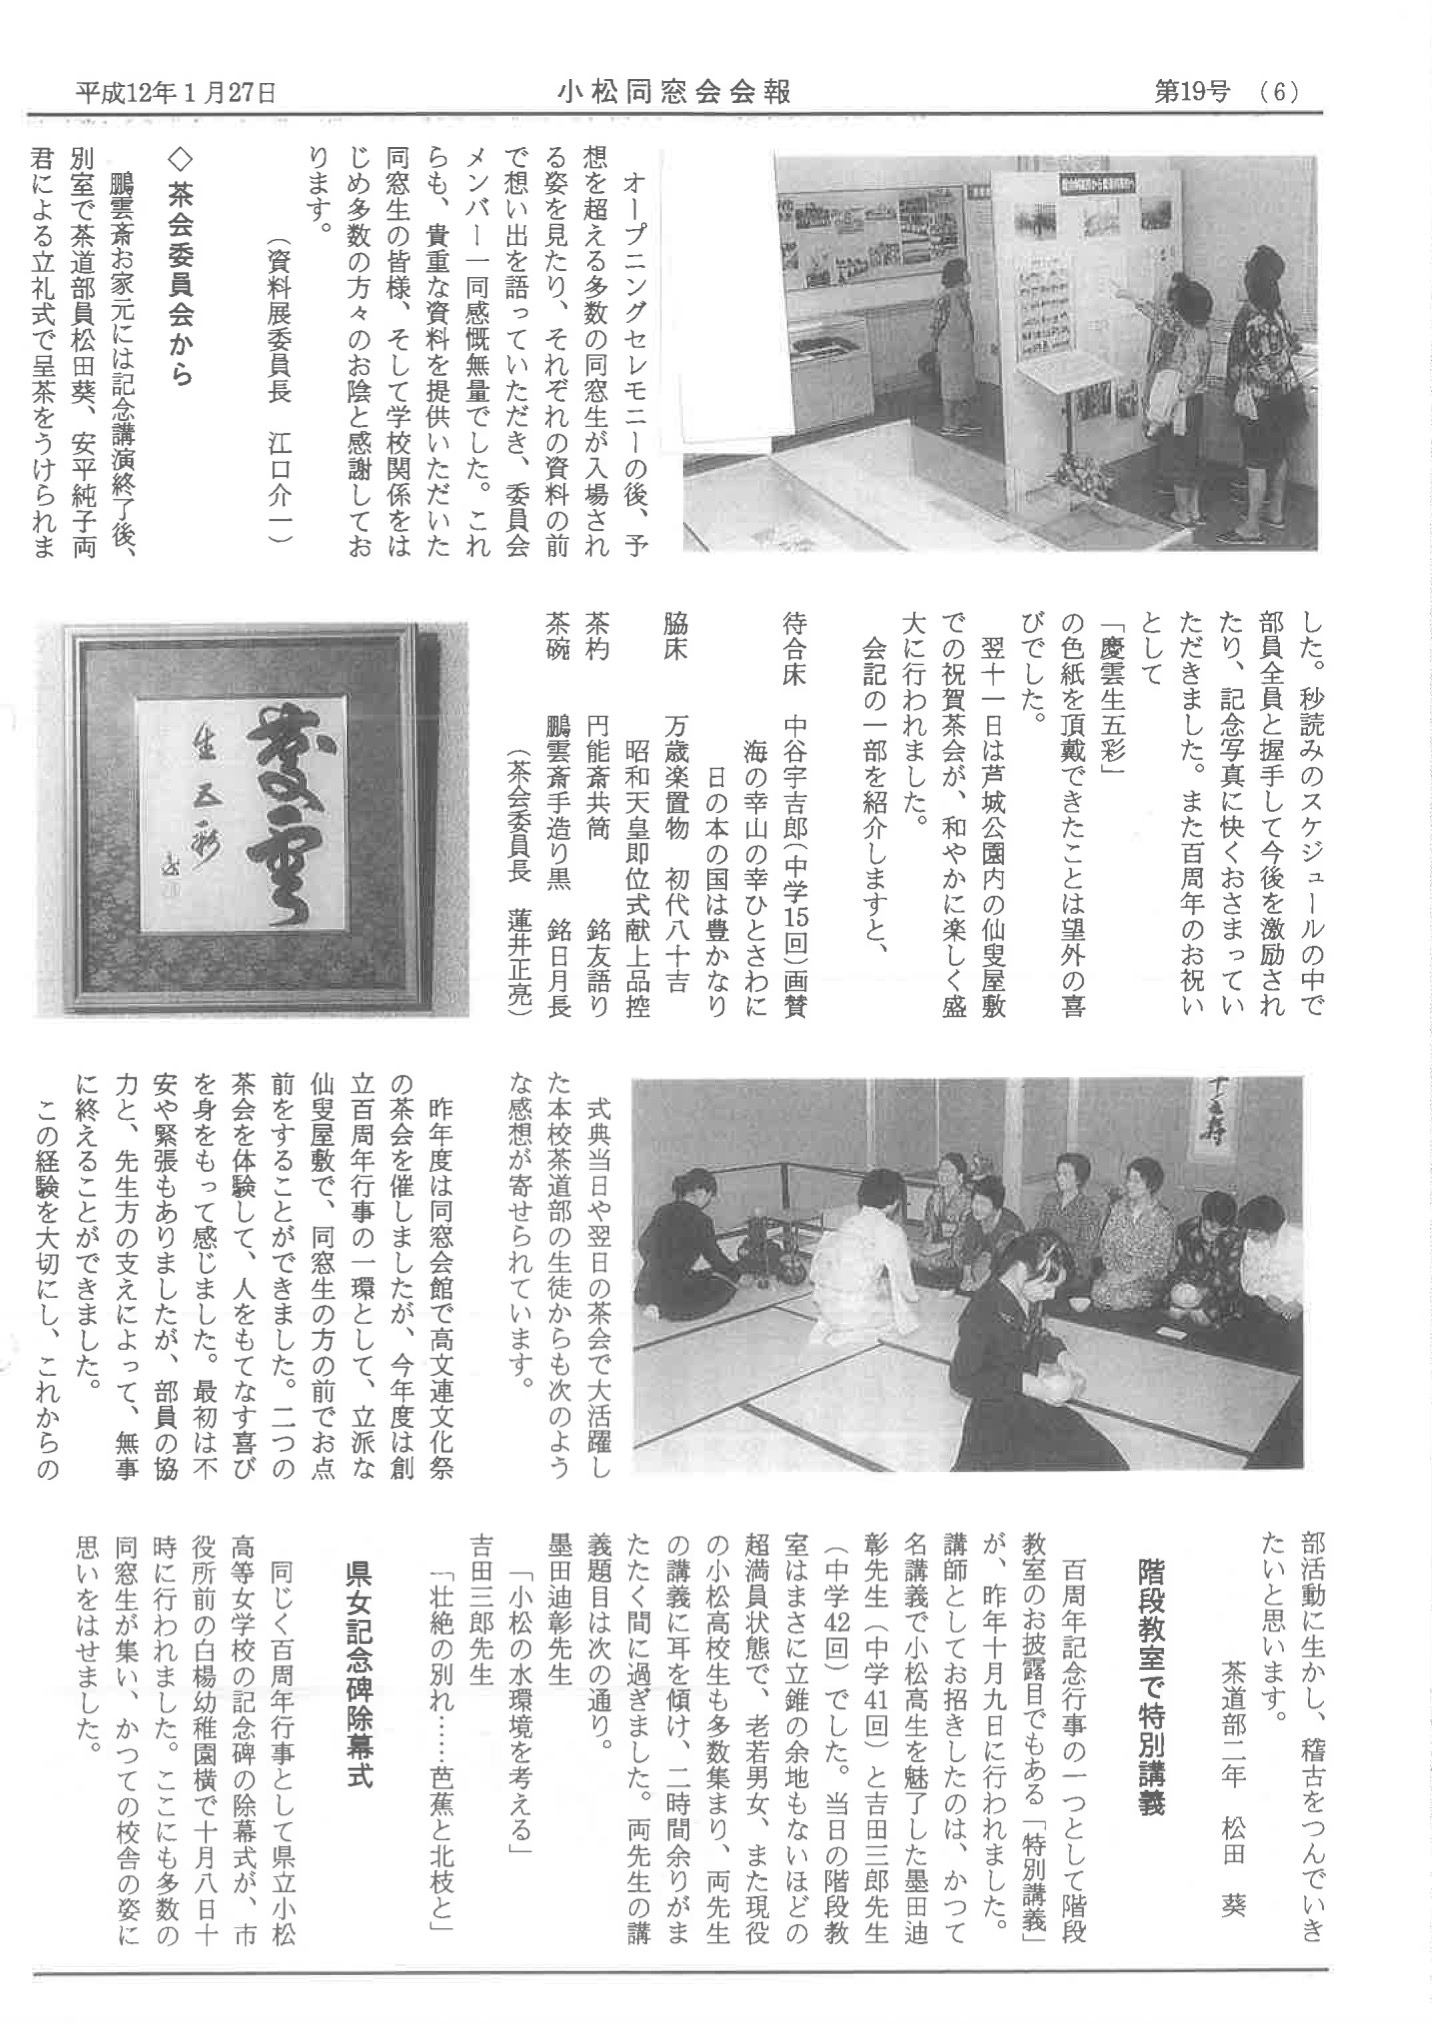 平成12年1月27日
小松同窓会会報
第19号 (6)
オープニングセレモニーの後、予
想を超える多数の同窓生が入場され
る姿を見たり、それぞれの資料の前
で想い出を語っていただき、委員会
メンバー一同感慨無量でした。これ
らも、貴重な資料を提供いただいた
同窓生の皆様、そして学校関係をは
じめ多数の方々のお陰と感謝してお
ります。
(資料展委員長 江口介一)
◇茶会委員会から
鵬雲斎お家元には記念講演終了後、
別室で茶道部員松田葵、安平純子両
君による立礼式で呈茶をうけられま
した。秒読みのスケジュールの中で
部員全員と握手して今後を激励され
たり、記念写真に快くおさまってい
ただきました。また百周年のお祝い
として
「慶雲生五彩」
の色紙を頂戴できたことは望外の喜
びでした。
翌十一日は芦城公園内の仙叟屋敷
での祝賀茶会が、和やかに楽しく盛
大に行われました。
会記の一部を紹介しますと、
待合床 中谷宇吉郎(中学15回)画賛
海の幸山の幸ひとさわに
日の本の国は豊かなり
脇床 万歳楽置物 初代八十吉
昭和天皇即位式献上品控
茶杓 円能斎共筒 銘友語り
茶碗 鵬雲斎手造り黒 銘日月長
(茶会委員長 蓮井正亮)
慶雲
生五彩
式典当日や翌日の茶会で大活躍し
た本校茶道部の生徒からも次のよう
な感想が寄せられています。
昨年度は同窓会館で高文連文化祭
の茶会を催しましたが、今年度は創
立百周年行事の一環として、立派な
仙叟屋敷で、同窓生の方の前でお点
前をすることができました。二つの
茶会を体験して、人をもてなす喜び
を身をもって感じました。最初は不
安や緊張もありましたが、部員の協
力と、先生方の支えによって、無事
に終えることができました。
この経験を大切にし、これからの
部活動に生かし、稽古をつんでいき
たいと思います。
茶道部二年 松田 葵
階段教室で特別講義
百周年記念行事の一つとして階段
教室のお披露目でもある「特別講義」
が、昨年十月九日に行われました。
講師としてお招きしたのは、かつて
名講義で小松高生を魅了した墨田迪
彰先生(中学41回)と吉田三郎先生
(中学42回)でした。当日の階段教
室はまさに立錐の余地もないほどの
超満員状態で、老若男女、また現役
の小松高校生も多数集まり、両先生
の講義に耳を傾け、二時間余りがま
たたく間に過ぎました。両先生の講
義題目は次の通り。
墨田迪彰先生
「小松の水環境を考える」
吉田三郎先生
「壮絶の別れ……芭蕉と北枝と」
県女記念碑除幕式
同じく百周年行事として県立小松
高等女学校の記念碑の除幕式が、市
役所前の白楊幼稚園横で十月八日十
時に行われました。ここにも多数の
同窓生が集い、かつての校舎の姿に
思いをはせました。